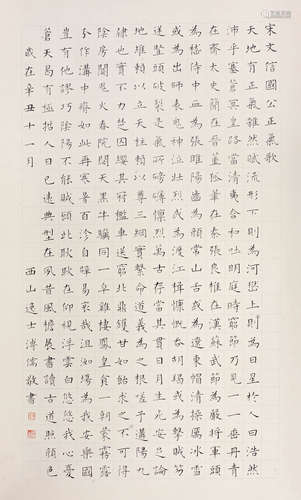 宋文信國公正氣歌
天地有正氣雜然賦流形下則為河嶽上則為日星於人曰浩然
沛乎塞蒼冥皇路當清夷含和吐明庭時窮節乃見一一垂丹青
在齊太史簡在晉董狐筆在秦張良椎在漢蘇武節為嚴將軍頭
為嵇侍中血為張睢陽齒為顏常山舌或為遼東帽清操厲冰雪
或為出師表鬼神泣壯烈或為渡江楫慷慨吞胡羯或為擊賊笏
逆豎頭破裂是氣所磅礴凜烈萬古存當其貫日月生死安足論
地維賴以立天柱賴以尊三綱實繫命道義為之根嗟予遘陽九
隸也實不力楚囚纓其冠傳車送窮北鼎鑊甘如飴求之不可得
陰房闃鬼火春院閟天黑牛驥同一皂雞棲鳳凰食一朝蒙霧露
分作溝中瘠如此再寒暑百沴自辟易哀哉沮洳場為我安樂國
豈有他繆巧陰陽不能賊顧此耿耿在仰視浮雲白悠悠我心憂
蒼天曷有極哲人日已遠典型在夙昔風簷展書讀古道照顏色
歲在辛丑十一月
西山逸士溥儒敬書